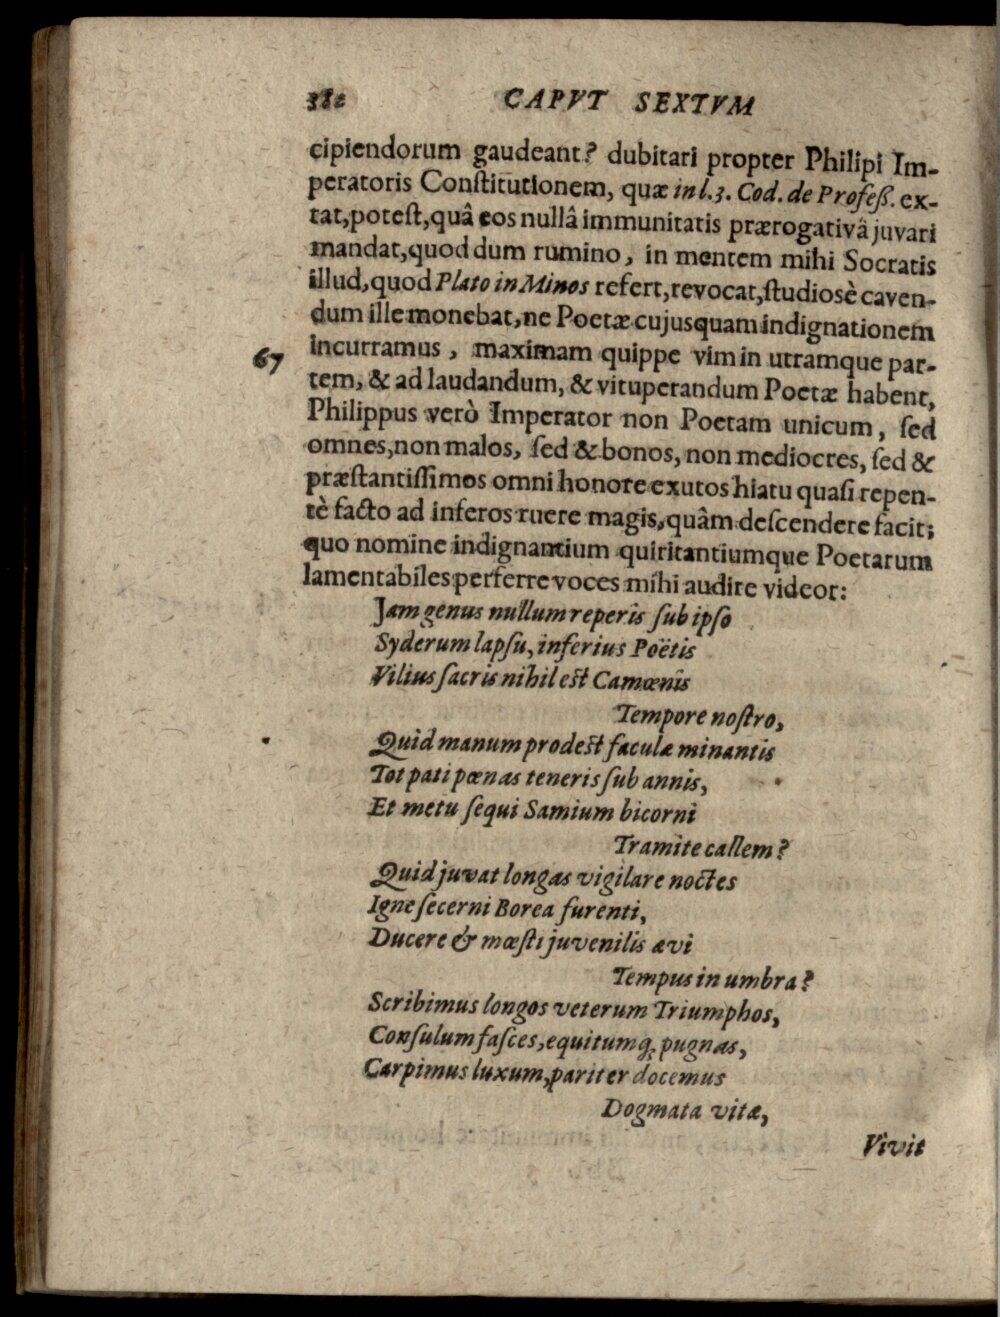 382 CAPVT SEXTVM
cipiendorum gaudeant? dubitari propter Philipi Im-
peratoris Constitutionem, quæ in l.3. Cod. de Profeß. ex-
tat, potest, quâ eos nullâ immunitatis prærogativâ juvari
mandat, quod dum rumino, in mentem mihi Socratis
illud, quod Plato in Minos refert, revocat, studiosè caven-
dum ille monebat, ne Poetæ cujusquam indignationem
67 incurramus, maximam quippe vim in utramque par-
tem, & ad laudandum, & vituperandum Poetæ habent,
Philippus verò Imperator non Poetam unicum, sed
omnes, non malos, sed & bonos, non mediocres, sed &
præstantissimos omni honore exutos hiatu quasi repen-
tè facto ad inferos ruere magis, quâm descendere facit;
quo nomine indignantium quiritantiumque Poetarum
lamentabiles perferre voces mihi audire videor:
Jam genus nullum reperis sub ipso
Syderum lapsu, inferius Poëtis
Vilius sacris nihil est Camœnis
Tempore nostro,
Quid manum prodest faculæ minantis
Tot pati pœnas teneris sub annis,
Et metu sequi Samium bicorni
Tramite callem?
Quid juvat longas vigilare noctes
Igne secerni Borea furenti,
Ducere & mœsti juvenilis ævi
Tempus in umbra?
Scribimus longos veterum Triumphos,
Consulum fasces, equitumq; pugnas,
Carpimus luxum, pariter docemus
Dogmata vitæ,
Vivit